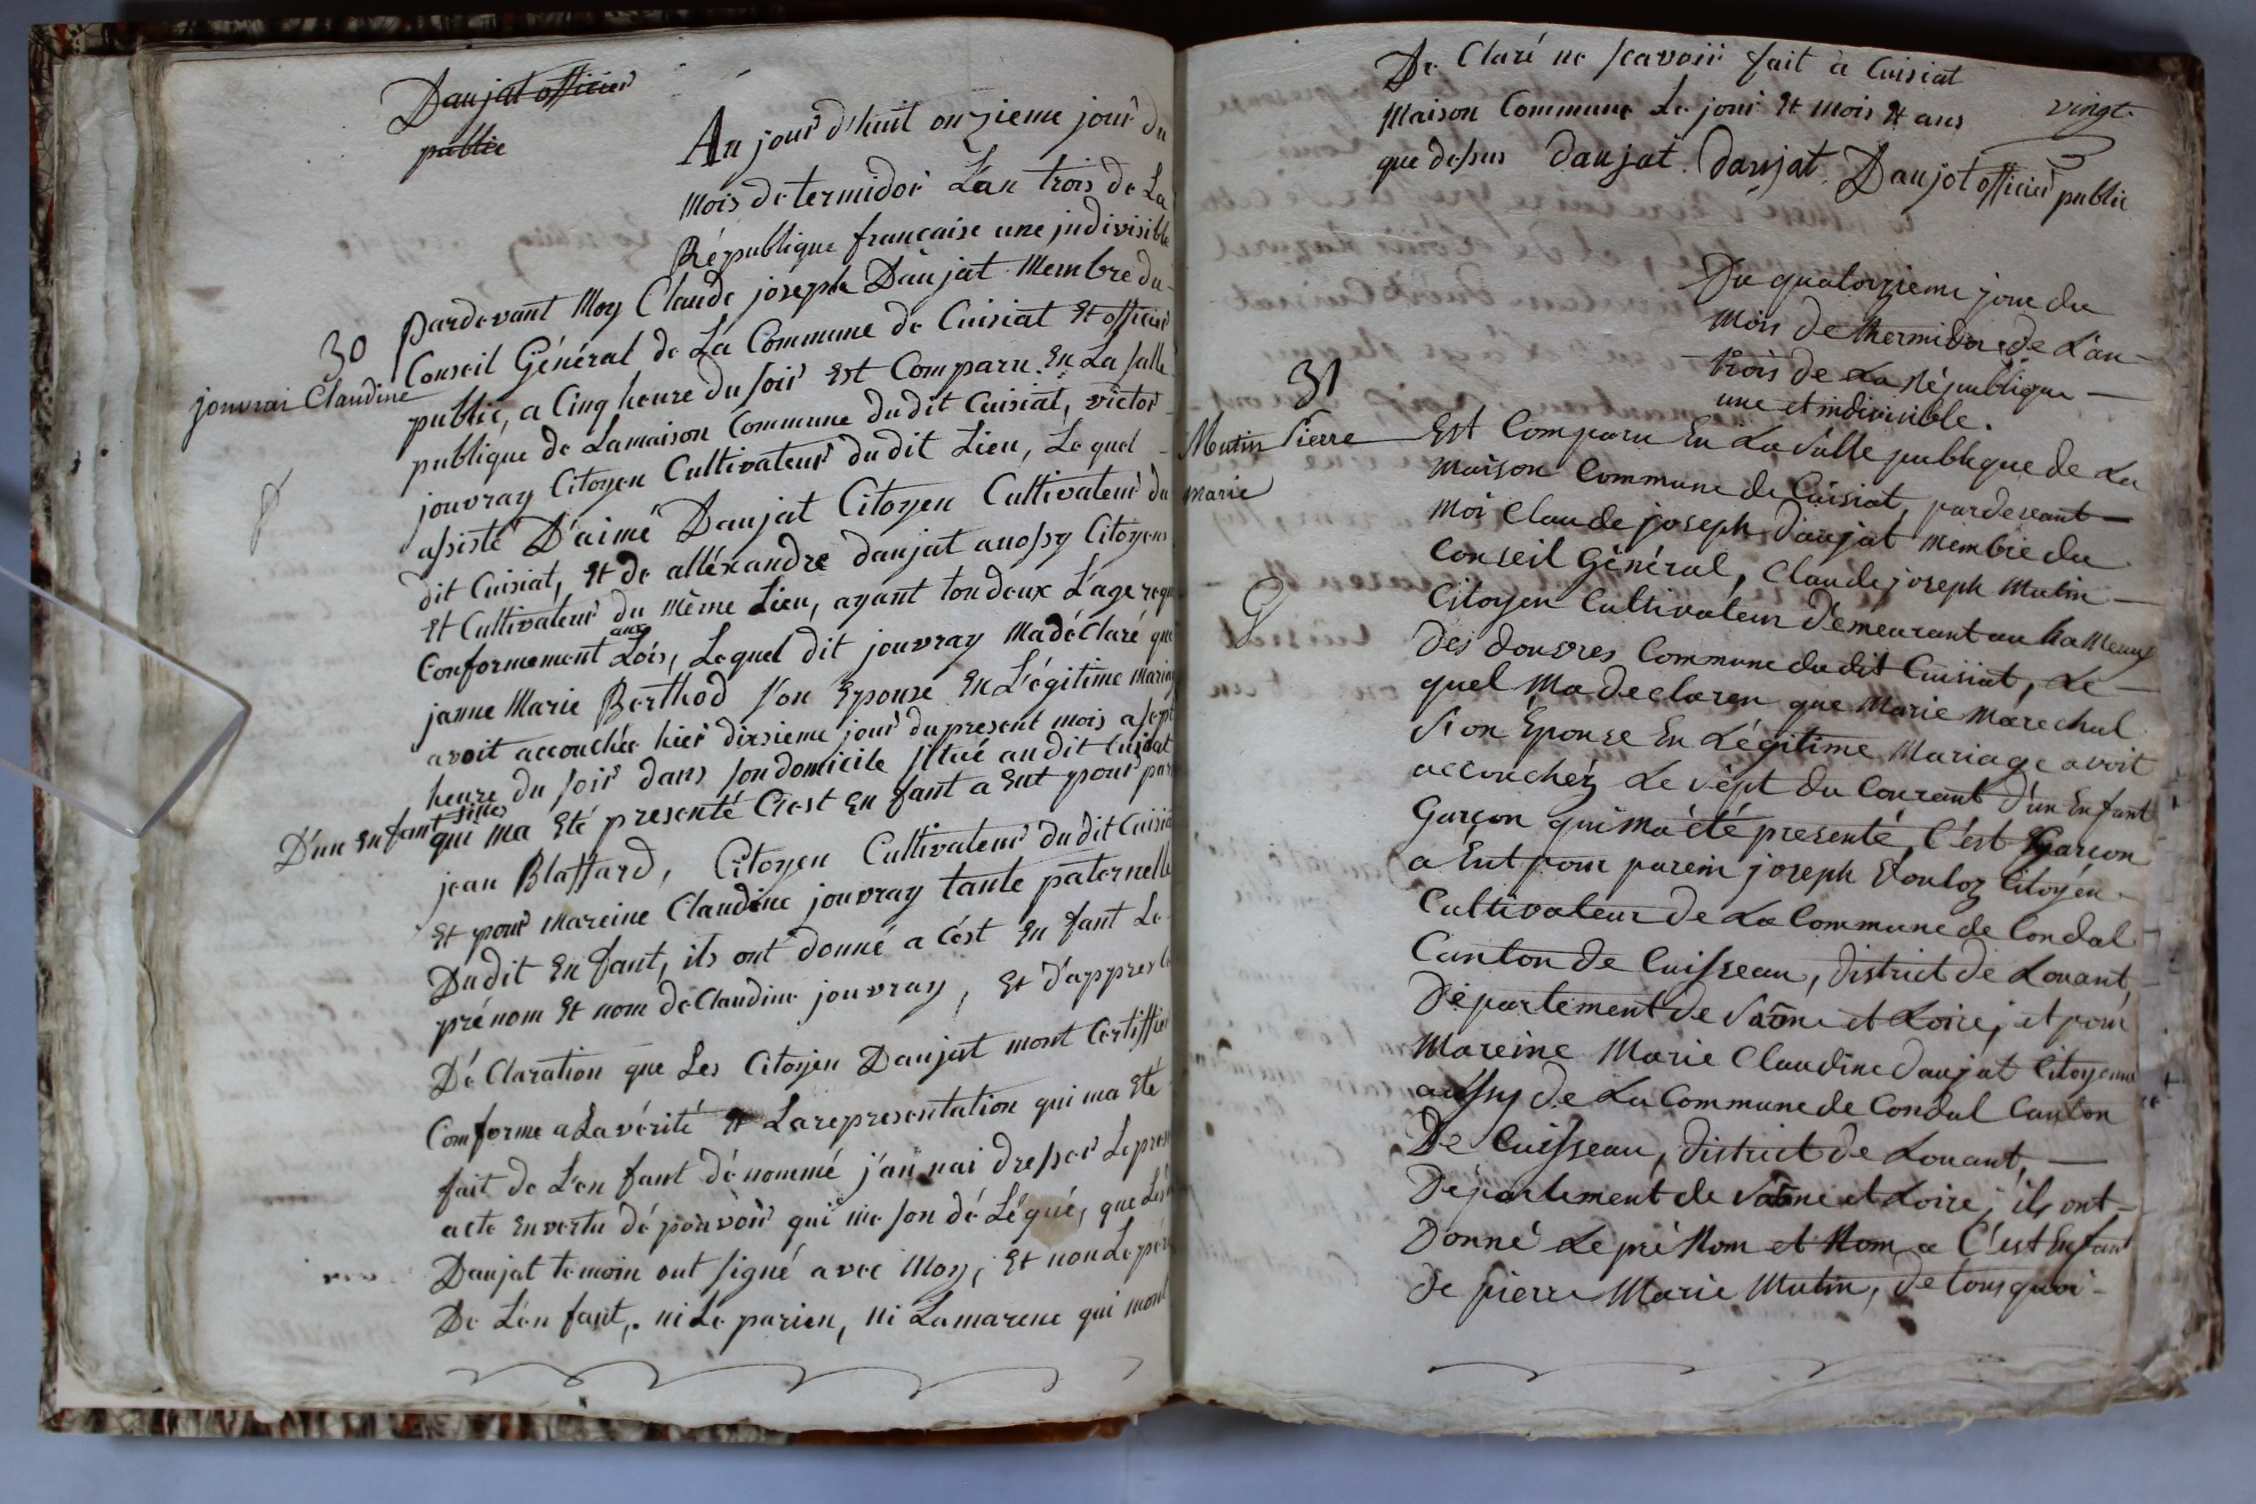 Daujat officier
public
Au jour d'huit onzieme jour du
mois de termidor L'an trois de La
République française une indivisible
30
jouvrai Claudine
pardevant Moy Claude joseph Daujat Membre du
Conseil Général de La Commune de Cuisiat Et officier
public, a Cinq heure du soir Est Comparu En La salle
publique de Lamaison Commune du dit Cuisiat, victor
jouvray Citoyen Cultivateur du dit Lieu, Le quel
assisté D'aimé Daujat Citoyen Cultivateur du
dit Cuisiat, Et de alléxandre daujat auossy Citoyens
Et Cultivateur du même Lieu, ayant tou deux L'age requ
Conformement aux Lois, Lequel dit jouvray Ma déClaré que
janne Marie Berthod son Epouse En Légitime Mariag
avoit accouchée hier dixsieme jour du present mois a sept
heure du soir dans son domicile situé au dit Cuisiat
D'un enfant filles
qui ma Eté presenté C'est En fant a Eut pour par
jean Blaffard, Citoyen Cultivateur du dit Cuisia
Et pour mareine Claudine jouvray tante paternelle
Du dit En fant, ils ont donné a c'est En fant Le
prénom Et nom de Claudine jouvray, Et d'appres la
Dé Claration que Les Citoyen Daujat mont Certiffier
Comforme a La vérité Et La representation qui ma Eté
fait de L'en fant dénommé j'an nai dresser Le pres
acte En vertu dé pouvoir qui me son dé Légué, que Les
Daujat temoin ont signé avec Moy, Et non Le pére
De L'en fant, ni Le parien, ni Lamarene qui mont
De Claré ne scavoir fait à Cuisiat
Maison Commune Le jour Et mois Et ans
vingt
que dessus daujat. daujat. Daujat officier public
Du quatorzieme jour du
Mois de thermidor de L'an
trois de La République
une et indivisible.
31
Mutin Pierre
marie
Est Comparu En La Salle publique de La
Maison Commune de Cuisiat, pardevant
Moi Claude joseph Daujat Membre du
Conseil Général, Claude joseph Mutin
Citoyen Cultivateur Démeurant au ha Meaux
Des dousres Commune du dit Cuisiat, Le
quel Ma declaren que Marie Maréchal
Son Épouse En Légitime Mariage avoit
accouchéz Le sépt du Courant d'un Enfant
Garçon qui ma été presenté, C'ést Garcon
a Eut pour parein joseph Citoyén
Cultivateur de La Commune de Condal
Canton de Cuisseau, District de Louant,
Département de Saône et Loire, et pour
Mareine Marie Claudine daujat Citoyenne
aussy de La Commune de Condal Canton
De Cuisseau, District de Louant,
Département de Saône et Loire; ils ont
Donné Le pré Nom et Nom a C'est Enfant
de pierre Marie Mutin, de tous quoi